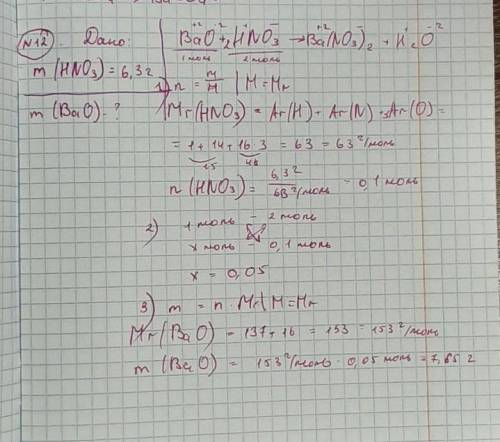 N12. Дано:
m (HNO₃) = 6,3г
m (BaO) - ?
BaO⁺²⁻² + 2H⁺NO₃⁻ → Ba⁺²(NO₃)₂⁻ + H₂⁺O⁻²
1 моль 2 моль
1) n = m/M | M = Mr
Mr (HNO₃) = Ar(H) + Ar(N) + 3Ar(O) =
= 1 + 14 + 16·3 = 63 = 63 г/моль
15 48
n (HNO₃) = 6,3г / 63 г/моль = 0,1 моль
2) 1 моль - 2 моль
x моль - 0,1 моль
x = 0,05
3) m = n · Mr | M = Mr
Mr (BaO) = 137 + 16 = 153 = 153 г/моль
m (BaO) = 153 г/моль · 0,05 моль = 7,65 г